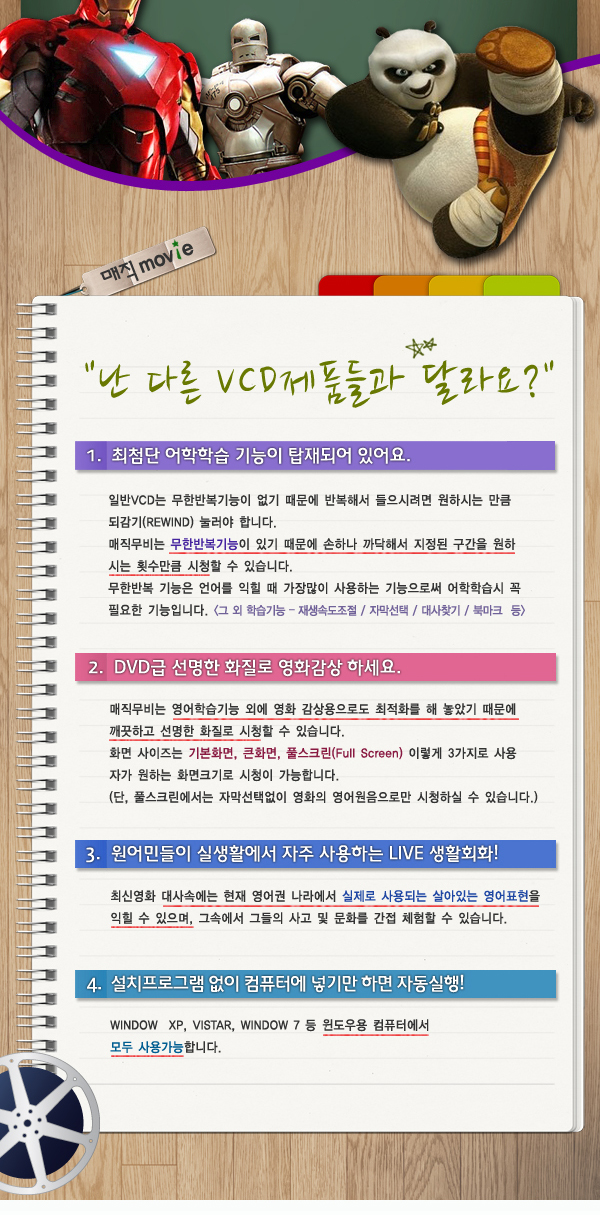 매직 movie
"난 다른 VCD제품들과 달라요?"
1. 최첨단 어학학습 기능이 탑재되어 있어요.
일반VCD는 무한반복기능이 없기 때문에 반복해서 들으시려면 원하시는 만큼
되감기(REWIND) 눌러야 합니다.
매직무비는 무한반복기능이 있기 때문에 손하나 까닥해서 지정된 구간을 원하
시는 횟수만큼 시청할 수 있습니다.
무한반복 기능은 언어를 익힐 때 가장많이 사용하는 기능으로써 어학학습시 꼭
필요한 기능입니다. <그 외 학습기능 - 재생속도조절 / 자막선택 / 대사찾기 / 북마크 등>
2. DVD급 선명한 화질로 영화감상 하세요.
매직무비는 영어학습기능 외에 영화 감상용으로도 최적화를 해 놓았기 때문에
깨끗하고 선명한 화질로 시청할 수 있습니다.
화면 사이즈는 기본화면, 큰화면, 풀스크린(Full Screen) 이렇게 3가지로 사용
자가 원하는 화면크기로 시청이 가능합니다.
(단, 풀스크린에서는 자막선택없이 영화의 영어원음으로만 시청하실 수 있습니다.)
3. 원어민들이 실생활에서 자주 사용하는 LIVE 생활회화!
최신영화 대사속에는 현재 영어권 나라에서 실제로 사용되는 살아있는 영어표현을
익힐 수 있으며, 그속에서 그들의 사고 및 문화를 간접 체험할 수 있습니다.
4. 설치프로그램 없이 컴퓨터에 넣기만 하면 자동실행!
WINDOW XP, VISTAR, WINDOW 7 등 윈도우용 컴퓨터에서
모두 사용가능합니다.